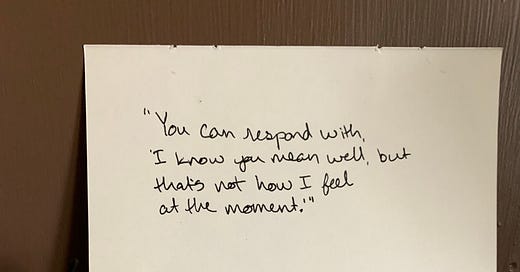 "You can respond with,
'I know you mean well, but
that's not how I feel
at the moment.'"